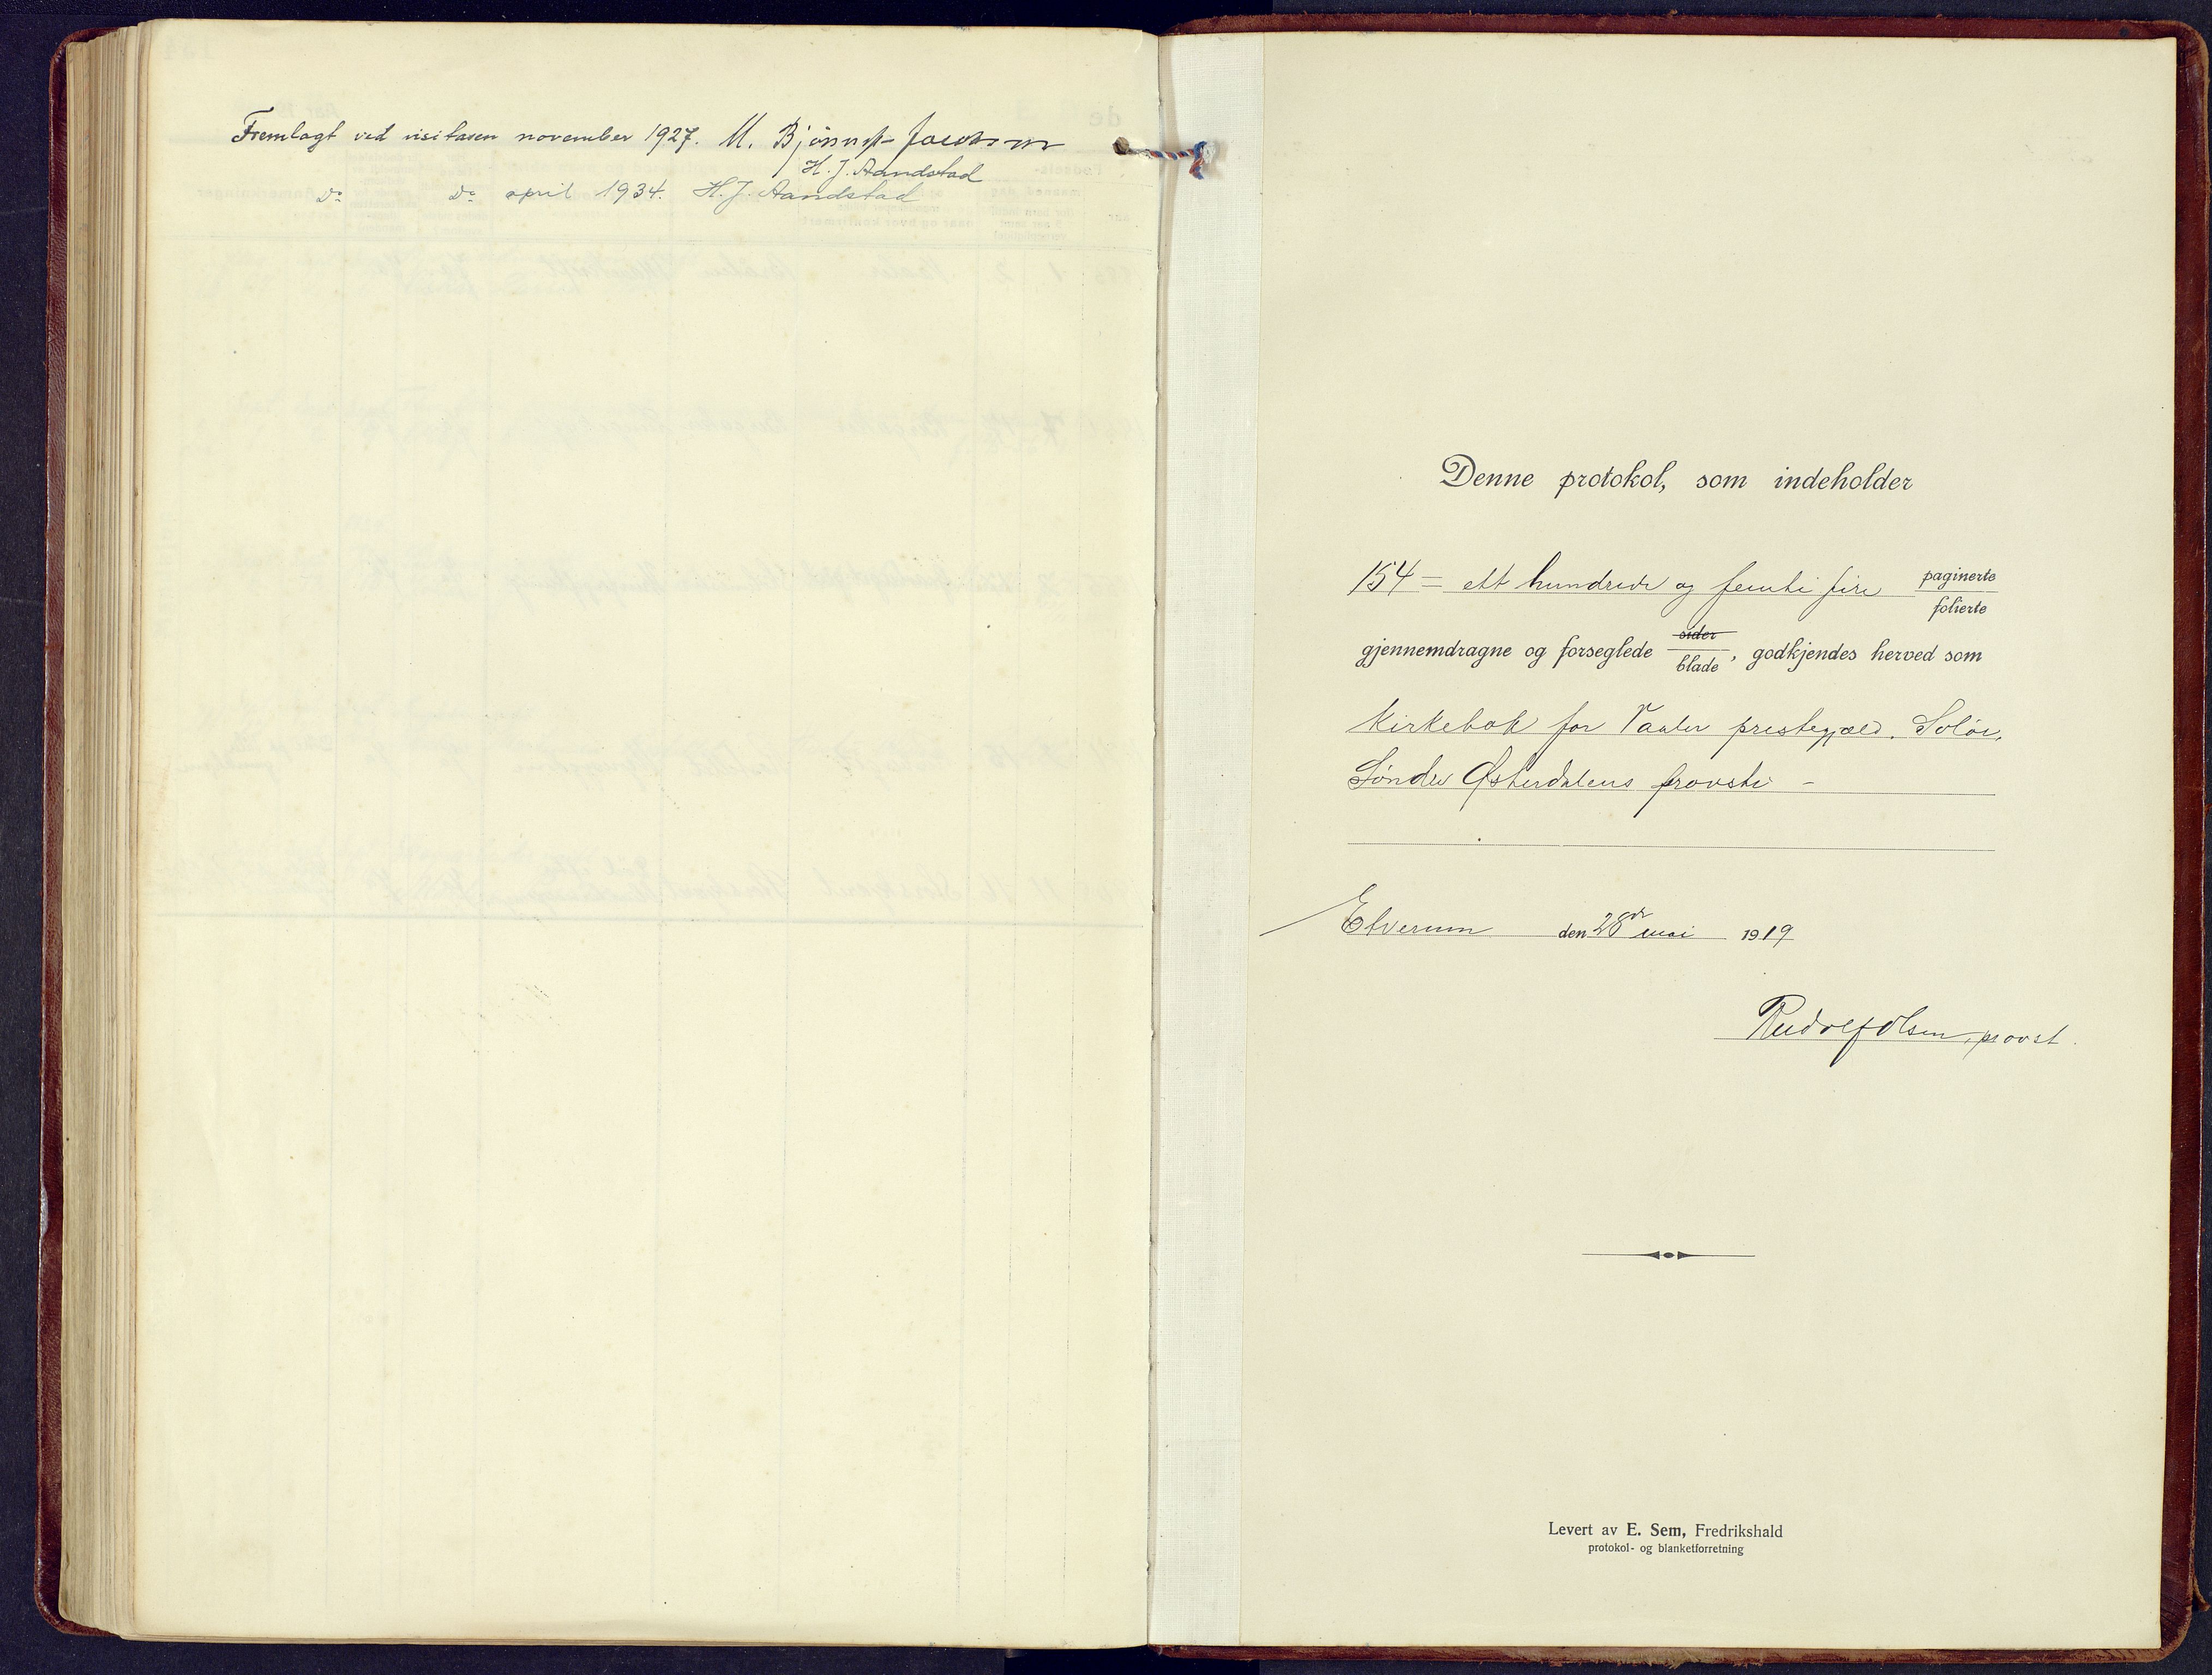 Fremlagt ved visitasen november 1927. M. Bjønnes-Jacobsen
H. J. Aandstad
Do Do april 1934. H. J. Aandstad
Denne protokol, som indeholder
154 = ett hundrede og femti fire paginerte
folierte
gjennemdragne og forseglede sider
blade, godkjendes herved som
kirkebok for Vaaler prestegjæld. Solør,
Søndre Østerdalens provsti –
Elverum den 28de mai 1919
Rudolf Olsen, provst.
Levert av E. Sem, Fredrikshald
protokol- og blanketforretning